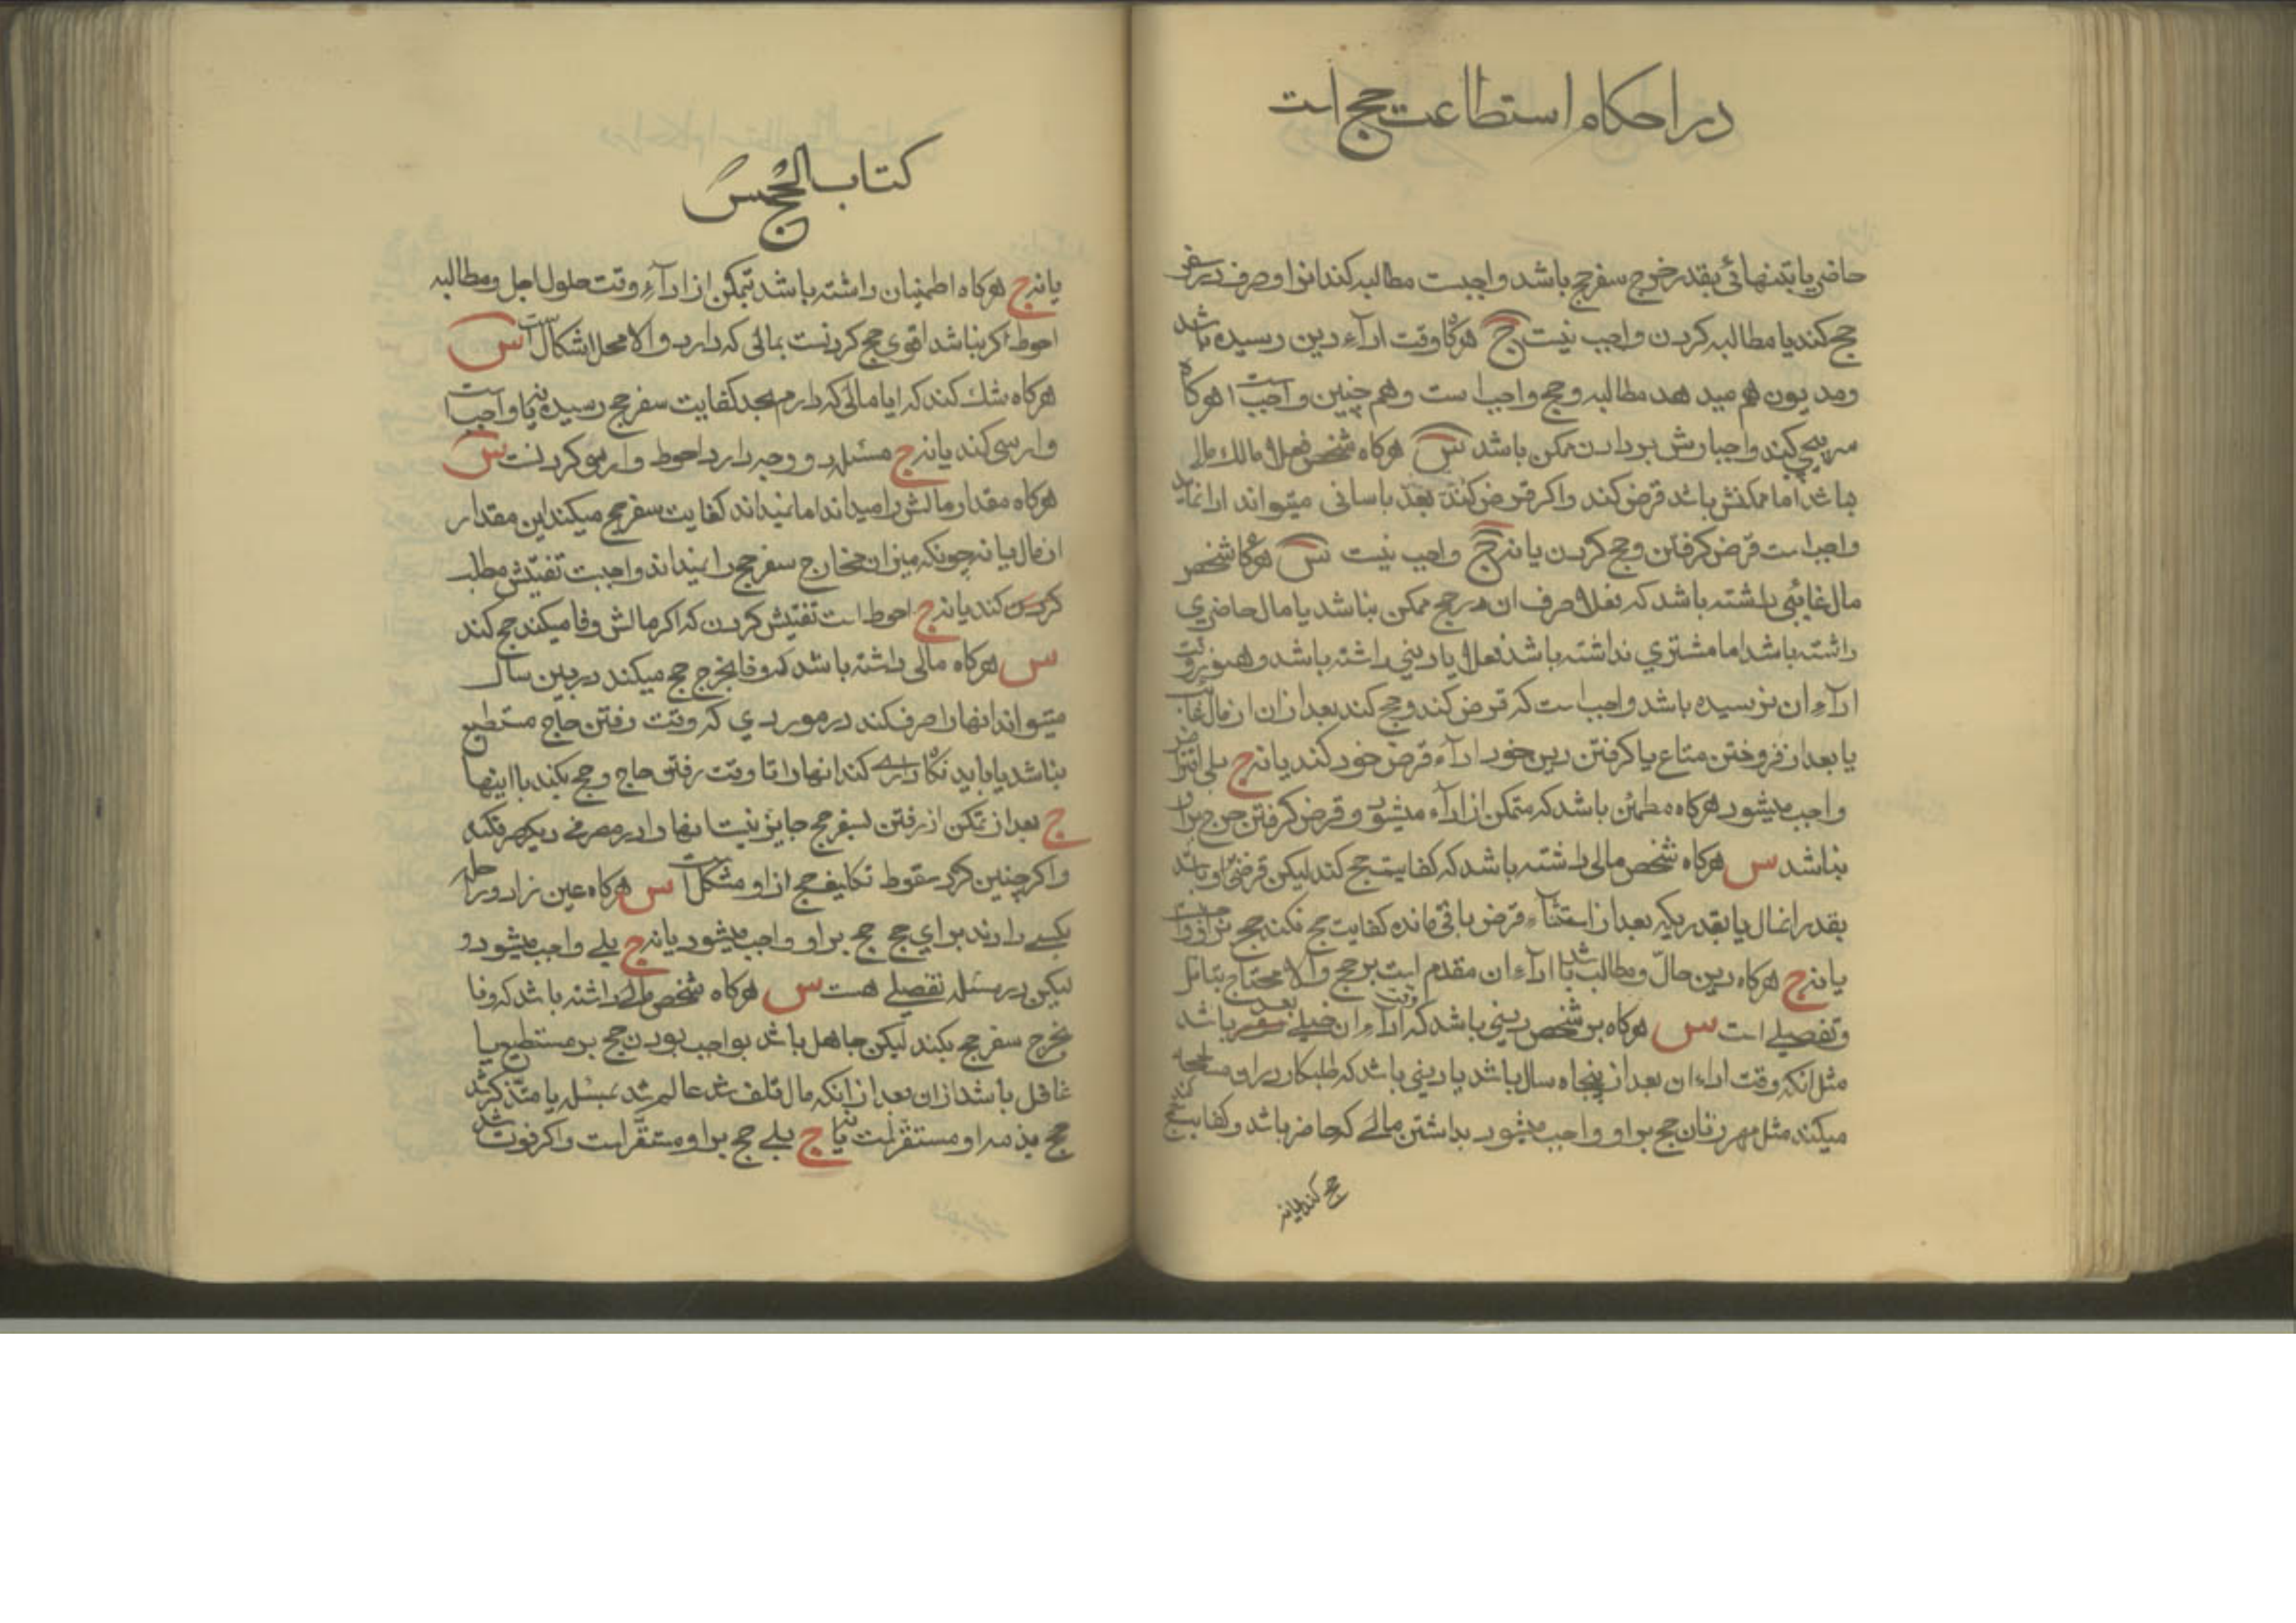 در احکام استطاعت حج است
حاضر یا بتنهائی بقدر خرج سفر حج باشد واجبست مطالبه کند انرا و صرف در سفر
حج کند یا مطالبه کردن واجب نیست ج هرکاه وقت اداء دین رسیده باشد
و مدیون هم میدهد مطالبه و حج واجب است و هم چنین واجب است هرکاه
سرپیچی کند واجبارش بر دادن ممکن باشد س هرکاه شخص فعلا مالک مالی
نباشد اما ممکنش باشد قرض کند و اکر قرض کند بعد باسانی میتواند ادا نماید
واجب است قرض کرفتن و حج کردن یا نه ج واجب نیست س هرکاه شخص
مال غائبی داشته باشد که فعلا صرف ان در حج ممکن نباشد یا مال حاضری
داشته باشد اما مشتری نداشته باشد فعلا یا دینی داشته باشد و هنوز وقت
اداء ان نرسیده باشد واجب است که قرض کند و حج کند بعد از ان از مال غائب
یا بعد از فروختن متاع یا کرفتن دین خود اداء قرض خود کند یا نه ج بلی
واجب میشود هرکاه مطمئن باشد که متمکن از اداء میشود و قرض کرفتن حرج بر او
نباشد س هرکاه شخص مالی داشته باشد که کفایت حج کند لیکن قرض بر او باشد
بقدر انمال یا بقدریکه بعد از استثناء قرض باقی مانده کفایت حج نکند حج بر او واجب است
یا نه ج هرکاه دین حال و مطالب باشد اداء ان مقدم است بر حج و الا محتاج بتامل
و تفصیلی است س هرکاه بر شخص دینی باشد که وقت اداء ان خیلی بعد باشد
مثل انکه وقت اداء ان بعد از پنجاه سال باشد یا دینی باشد که طلبکار در او مسامحه
میکند مثل مهر زنان حج بر او واجب میشود بداشتن مالی که حاضر باشد و کفایت
حج کند یا نه
کتاب الحج
یا نه ج هرکاه اطمینان داشته باشد بتمکن از اداء وقت حلول اجل و مطالبه
احوط اکر نباشد اقوی حج کردنست بمالی که دارد و الا محل اشکال است س
هرکاه شک کند که ایا مالی که دارم بحد کفایت سفر حج رسیده یا نه واجب است
وارسی کند یا نه ج مسئله دو وجه دارد احوط وارسی کردنست س
هرکاه مقدار مالش را میداند اما نمیداند کفایت سفر حج میکند این مقدار
از مال یا نه چونکه میزان مخارج سفر حج را نمیداند واجبست تفتیش مطلب
کردن کند یا نه ج احوط است تفتیش کردن که اکر مالش وفا میکند حج کند
س هرکاه مالی داشته باشد که وفا بخرج حج میکند در بین سال
میتواند انها را صرف کند در موردی که وقت رفتن حاج مستطیع
نباشد یا باید نکاه داری کند انها را تا وقت رفتن حاج و حج بکند با اینها
ج بعد از تمکن از رفتن بسفر حج جایز نیست انها را در مصرفی دیکر صرف کند
و اکر چنین کرد سقوط تکلیف حج از او مشکل است س هرکاه عین زاد و راحله
بکسی دادند برای حج حج بر او واجب میشود یا نه ج بلی واجب میشود و
لیکن در مسئله تفصیلی هست س هرکاه شخص مالی داشته باشد که وفا
بخرج سفر حج بکند لیکن جاهل باشد بواجب بودن حج بر مستطیع یا
غافل باشد از ان بعد از انکه مال تلف شد عالم شد بمسئله یا متذکر شد
حج بذمه او مستقر است یا نه ج بلی حج بر او مستقر است و اکر فوت شد